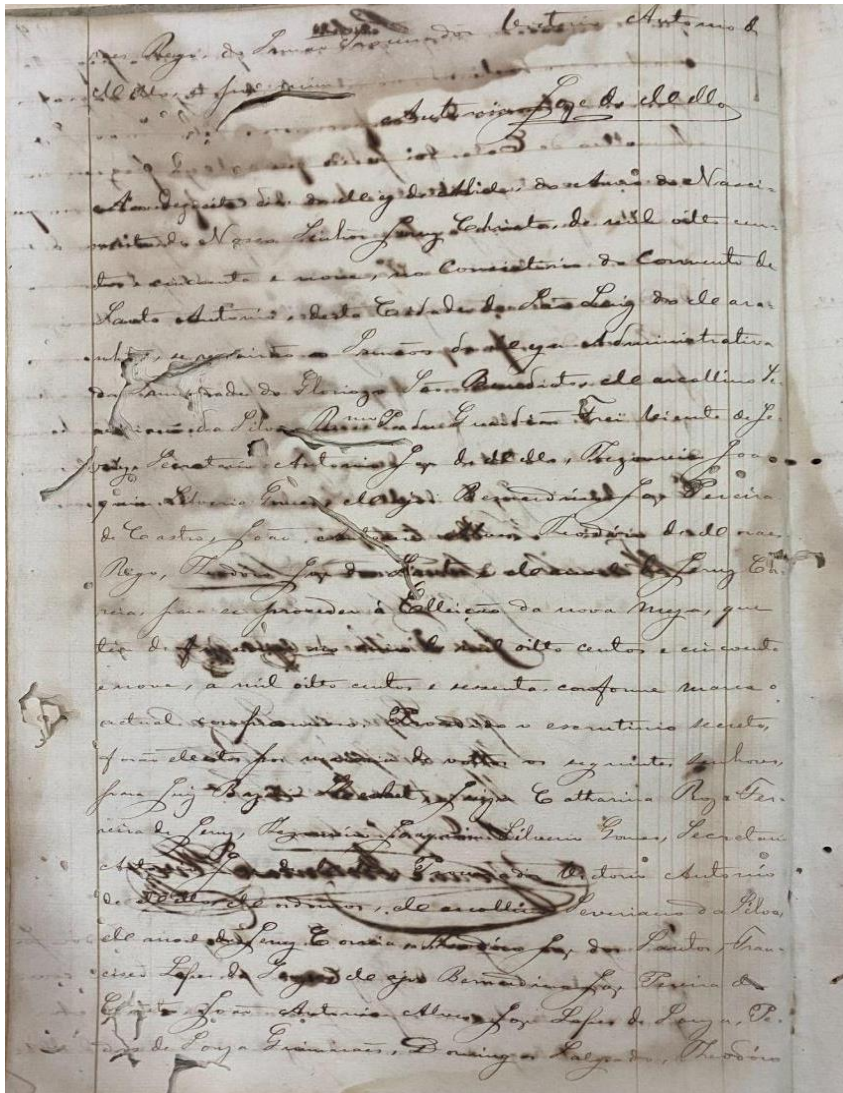 raes Rego, do Irmão Procurador Victorio Antonio de
Mello,
Antonio Joze de Mello
Aos dezoito dias do Mez de Abril do Anno do Nasci-
mento de Nosso Senhor Jezuz Christo, de mil oito cen-
tos e cincoenta e nove, no Consistorio do Convento de
Santo Antonio, desta Cidade de São Luiz do Mara-
nhão, se reunirão os Irmãos da Meza Administrativa
da Irmandade do Gloriozo São Benedicto, Marcellino Se-
veriano da Silva, Rmo Padre Guardião Frei Vicente de Je-
zuz, Secretario Antonio Joze de Mello, Thezoureiro Joa-
quim Silverio Gomes, Bernardino Joze Pereira
de Castro, João Antonio Alves, Theodorio de Moraes
Rego, Theodorio Joze dos Santos e Manoel de Jezuz Co-
rreia, para se proceder á Elleição da nova Meza, que
tem de mil oitto centos e cincoenta
e nove, a mil oitto centos e sessenta conforme marca o
actual compromisso. Procedido o escrutinio secreto,
forão eleitos por maioria de vottos os seguintes senhores,
para Juiz Juiza Catharina Roza Fer-
reira de Jezuz, Thezoureiro Joaquim Silverio Gomes, Secretario
Antonio Joze de Mello, Procurador Victorio Antonio
de Mello, Mordomos, Marcellino Severiano da Silva,
Manoel de Jezuz Correia, Theodorio Joze dos Santos, Fran-
cisco Lopes de Souza, Bernardino Joze Pereira de
Castro, João Antonio Alves, Joze Lopes de Souza, Pe-
dro de Souza Guimarães, Domingos Salgado, Theodorio